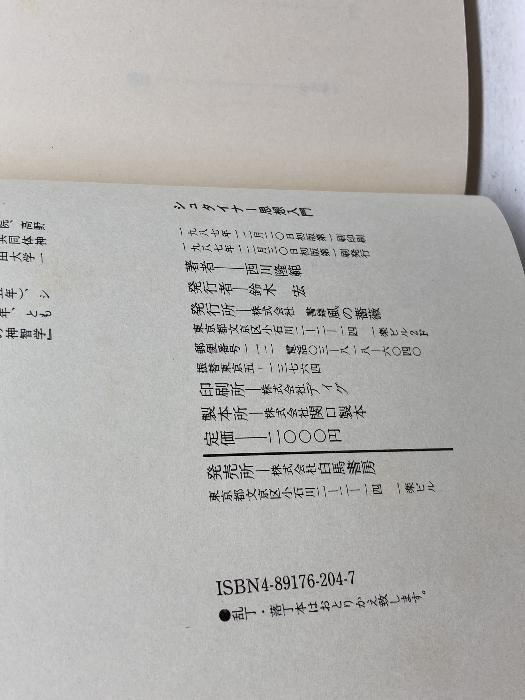 シュタイナー思想入門
一九八七年一二月二〇日初版第一刷印刷
一九八七年一二月三〇日初版第一刷発行
著者――西川隆範
発行者――鈴木 宏
発行所――株式会社 書肆風の薔薇
東京都文京区小石川二―二一―四 一楽ビル2F
郵便番号一一二 電話〇三―八一八―六〇四〇
振替東京五―一三七六四
印刷所――株式会社ディグ
製本所――株式会社関口製本
定価――二〇〇〇円
発売所――株式会社白馬書房
東京都文京区小石川二―二一―四 一楽ビル
ISBN4-89176-204-7
●乱丁・落丁本はおとりかえ致します。
共同体神
田大学一
年)、シ
年、とも
神智学』